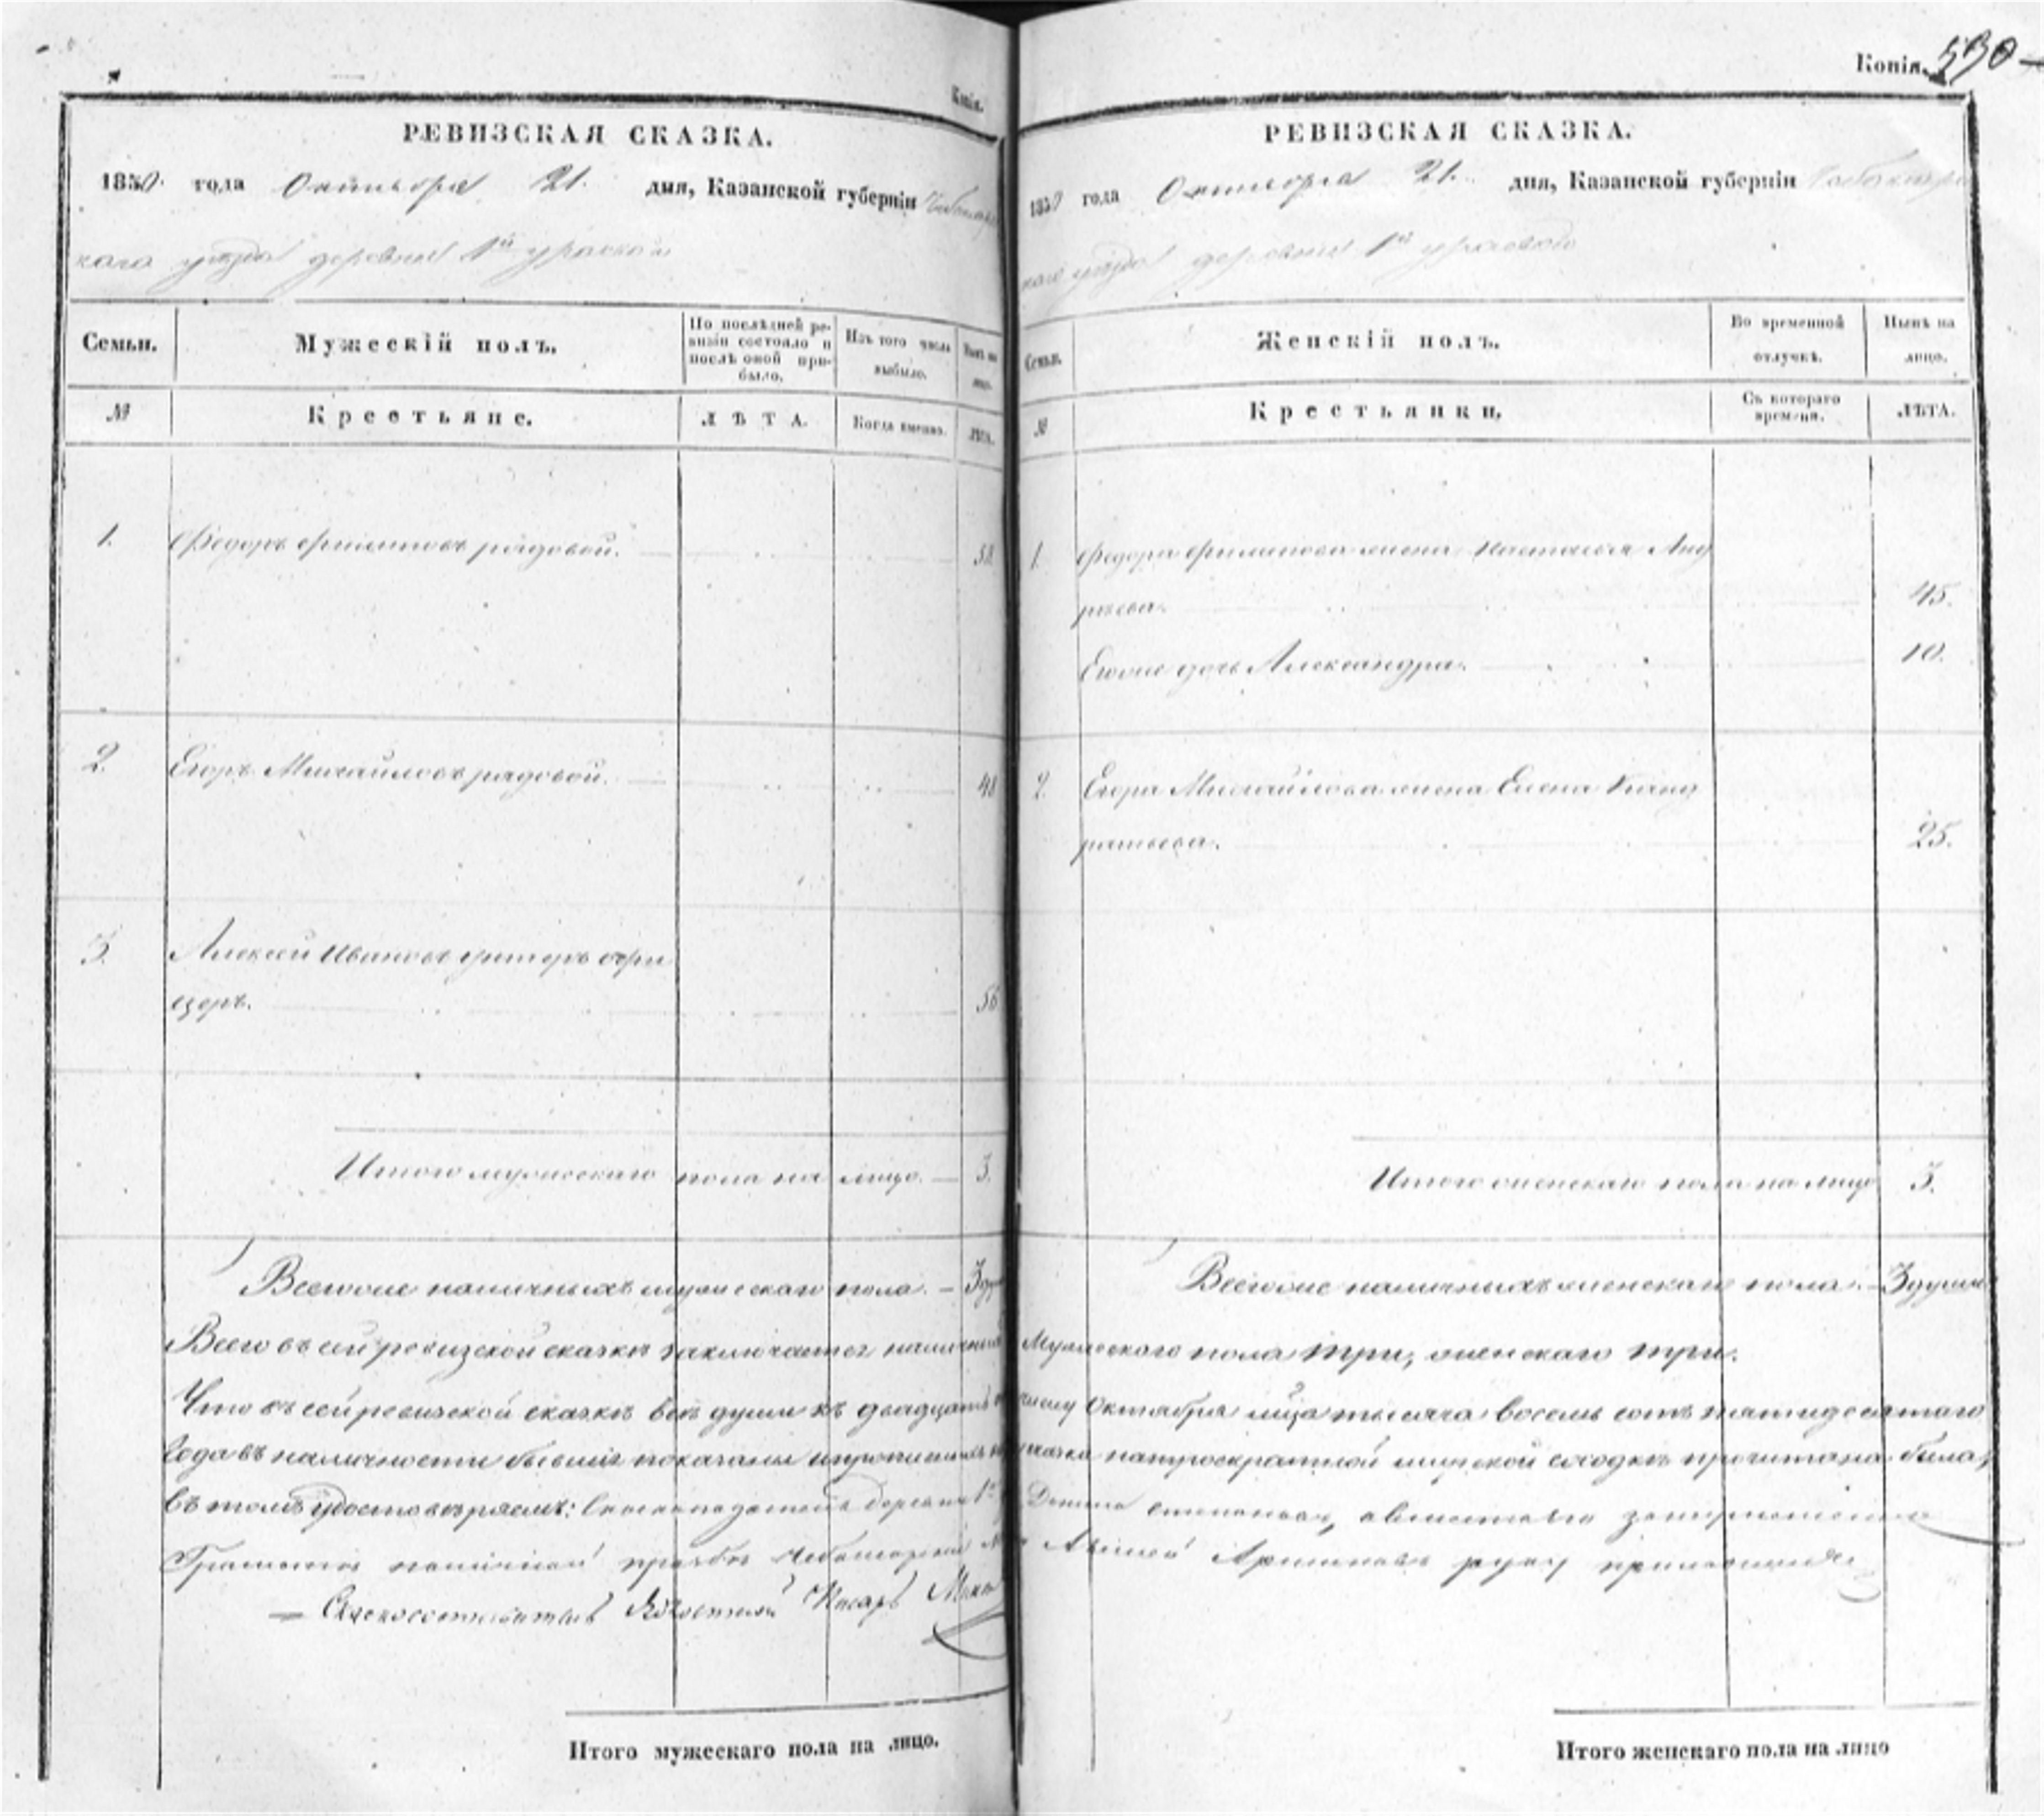 Копія.
РЕВИЗСКАЯ СКАЗКА.
1850 года Октября 21. дня, Казанской губерніи Чебоксарс
каго уѣзда деревни 1й
Семьи.
Мужескій полъ.
По послѣдней ре-
визіи состояло и
послѣ оной при-
было.
Изъ того числа
выбыло.
Нынѣ на
лицо.
№
Крестьяне.
ЛѢТА.
Когда именно.
ЛѢТА.
1. Федоръ Филиповъ рядовой.
2. Егоръ Михайловъ рядовой. 48
3. Алексей Ивановъ унтеръ офи
церъ. 56
Итого мужескаго пола на лицо. — 3.
Всего же наличныхъ мужескаго пола. — 3 ду
Всего въ сей ревизской сказкѣ заключается наличныхъ
Что въ сей ревизской сказкѣ всѣ души къ двадцать
года въ наличности бывшіе показаны
въ томъ удостовѣряемъ: Сказкоподатель деревни 1й
Грамотѣ
— Сказкосоставитель Писарь
Итого мужескаго пола на лицо.
Копія. 590
РЕВИЗСКАЯ СКАЗКА.
1850 года Октября 21. дня, Казанской губерніи Чебоксарс
каго уѣзда деревни 1й
Семьи.
Женскій полъ.
Во временной
отлучкѣ.
Нынѣ на
лицо.
№
Крестьянки.
Съ котораго
времени.
ЛѢТА.
1. Федора Филипова жена Настасья Анд
реева. 45.
Егоже дочь Александра. 10.
2. Егора Михайлова жена Елена Канд
ратьева. 25.
Итого женскаго пола на лицо 3.
Всего же наличныхъ женскаго пола. — 3 души
Мужескаго пола три, женскаго три.
числу Октября мѣца тысяча восемь сотъ пятидесятаго
сказка натроекратной мирской сходкѣ прочитана была,
Степановъ,
руку приложилъ
Итого женскаго пола на лицо